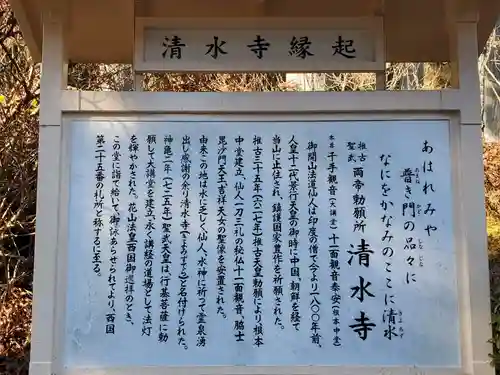 清水寺縁起
あはれみや
普き門の品々に
なにをかなみのここに清水
推古
聖武 両帝勅願所 清水寺
本尊 千手観音(大講堂)十一面観音泰安(根本中堂)
御開山法道仙人は印度の僧で今より一八〇〇年前、
人皇十二代景行天皇の御時に中国、朝鮮を経て
当山に止住され、鎮護国家豊作を祈願された。
推古三十五年(六二七年)推古天皇勅願により根本
中堂建立、仙人一刀三礼の秘仏十一面観音、脇士
毘沙門天王、吉祥天女の聖像を安置された。
由来この地は水に乏しく仙人、水神に祈って霊泉湧
出し感謝の余り清水寺(きよみずでら)と名を付けられた。
神亀二年(七二五年)聖武天皇は、行基菩薩に勅
願して大講堂を建立、永く講経の道場として法灯
を輝やかされた。花山法皇西国御巡拝のとき、
この堂に詣で給いて御詠あらせられてより、西国
第二十五番の札所と称するに至る。